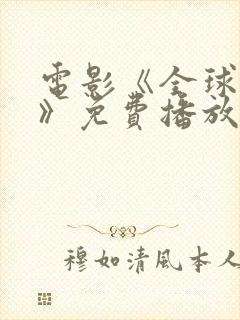 電影《全球
》免費播放
穆如清風本人